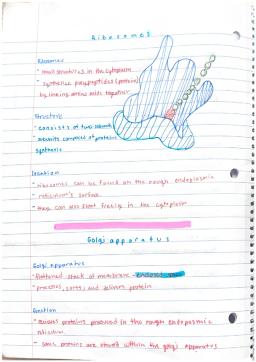 Ribosomes
Ribosomes
* small structures in the cytoplasm
* synthesise polypeptides (proteins)
by linking amino acids together
Structure
* consists of two subunits
subunits composed of protein
synthesis
location
* ribosomes can be found on the rough endoplasmic
* reticulum's surface
* they can also float freely in the cytoplasm
Golgi apparatus
Golgi apparatus
* flattened stack of membrane-enclosed sacs
* process, sorts and delivers protein
function
* receives proteins produced in the rough endoplasmic
reticulum
* some proteins are stored within the golgi apparatus